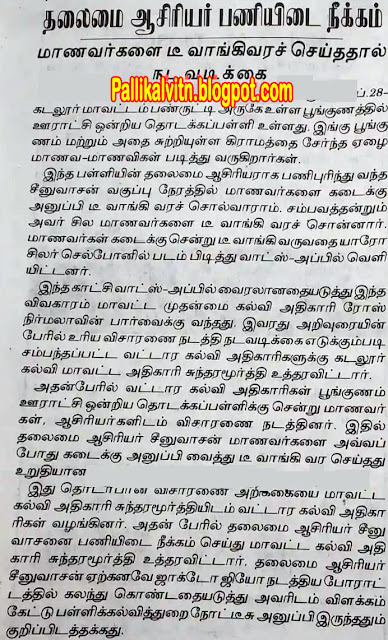 தலைமை ஆசிரியர் பணியிடை நீக்கம்
மாணவர்களை டீ வாங்கிவரச் செய்ததால்
நடவடிக்கை
Pallikalvitn.blogspot.com
ப்.28-
கடலூர் மாவட்டம் பண்ருட்டி அருகே உள்ள பூங்குணத்தில்
ஊராட்சி ஒன்றிய தொடக்கப்பள்ளி உள்ளது. இங்கு பூங்கு
ணம் மற்றும் அதை சுற்றியுள்ள கிராமத்தை சேர்ந்த ஏழை
மாணவ-மாணவிகள் படித்து வருகிறார்கள்.
இந்த பள்ளியின் தலைமை ஆசிரியராக பணிபுரிந்து வந்த
சீனுவாசன் வகுப்பு நேரத்தில் மாணவர்களை கடைக்கு
அனுப்பி டீ வாங்கி வர சொல்வாராம். சம்பவத்தன்றும்
அவர் சில மாணவர்களை டீ வாங்கி வரச் சொன்னார்.
மாணவர்கள் கடைக்கு சென்று டீ வாங்கி வருவதை யாரோ
சிலர் செல்போனில் படம் பிடித்து வாட்ஸ்-அப்பில் வெளி
யிட்டனர்.
இந்த காட்சி வாட்ஸ்-அப்பில் வைரலானதையடுத்து இந்த
விவகாரம் மாவட்ட முதன்மை கல்வி அதிகாரி ரோஸ்
நிர்மலாவின் பார்வைக்கு வந்தது. இவரது அறிவுரையின்
பேரில் உரிய விசாரணை நடத்தி நடவடிக்கை எடுக்கும்படி
சம்பந்தப்பட்ட வட்டார கல்வி அதிகாரிகளுக்கு கடலூர்
கல்வி மாவட்ட அதிகாரி சுந்தரமூர்த்தி உத்தரவிட்டார்.
அதன்பேரில் வட்டார கல்வி அதிகாரிகள் பூங்குணம்
ஊராட்சி ஒன்றிய தொடக்கப்பள்ளிக்கு சென்று மாணவர்
கள், ஆசிரியர்களிடம் விசாரணை நடத்தினர். இதில்
தலைமை ஆசிரியர் சீனுவாசன் மாணவர்களை அவ்வப்
போது கடைக்கு அனுப்பி வைத்து டீ வாங்கி வர செய்தது
உறுதியான
இது தொடர்பான விசாரணை அறிக்கையை மாவட்ட
கல்வி அதிகாரி சுந்தரமூர்த்தியிடம் வட்டார கல்வி அதிகா
ரிகள் வழங்கினர். அதன் பேரில் தலைமை ஆசிரியர் சீனு
வாசனை பணியிடை நீக்கம் செய்து மாவட்ட கல்வி அதி
காரி சுந்தரமூர்த்தி உத்தரவிட்டார். தலைமை ஆசிரியர்
சீனுவாசன் ஏற்கனவே ஜாக்டோ ஜியோ நடத்திய போராட்
டத்தில் கலந்து கொண்டதையடுத்து அவரிடம் விளக்கம்
கேட்டு பள்ளிக்கல்வித்துறை நோட்டீசு அனுப்பி இருந்ததும்
குறிப்பிடத்தக்கது.